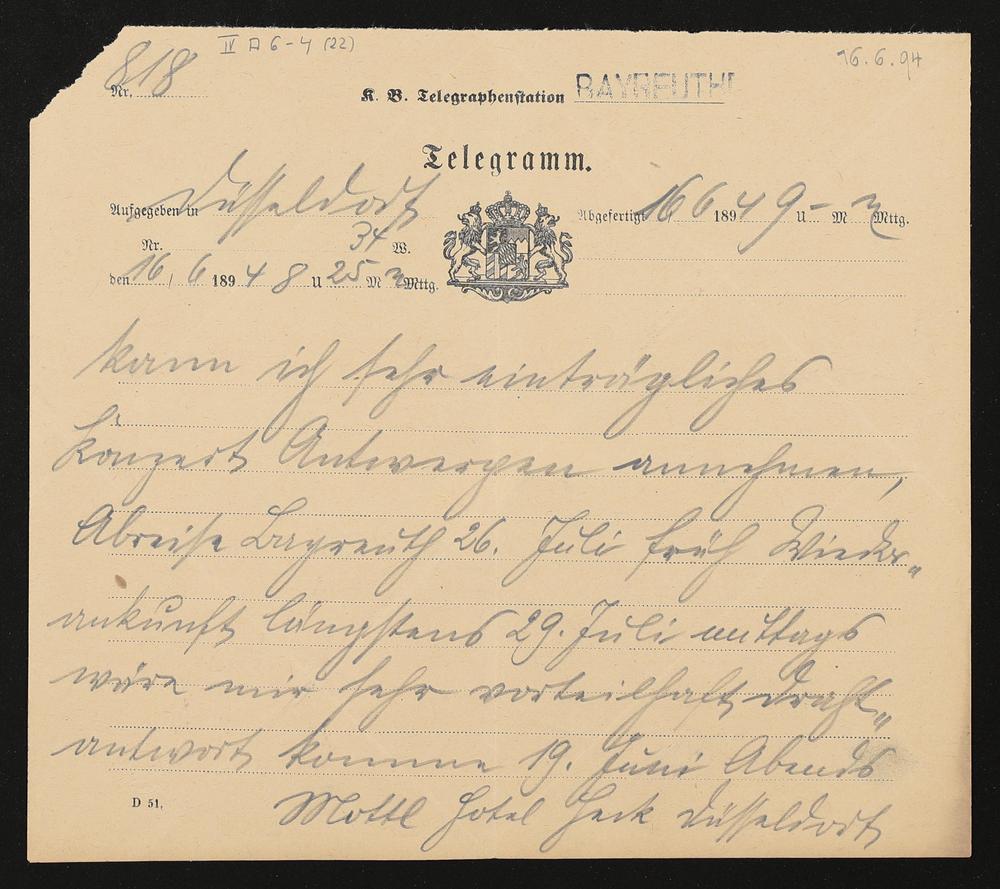 IV A 6-4 (22)
16.6.94
Nr. 818
K. B. Telegraphenstation BAYREUTH
Telegramm.
Aufgegeben in Düsseldorf
Abgefertigt 16 6 1894 9 U – M Mttg.
Nr. 34 W.
den 16/6 1894 8 U 25 M Mttg.
kann ich sehr einträgliches
Konzert Antwerpen annehmen,
Abreise Bayreuth 26. Juli früh Wieder„
ankunft längstens 29. Juli mittags
wäre mir sehr vorteilhaft Draht„
antwort komme 19. Juni Abends
D 51.
Mottl Hotel Heck Düsseldorf